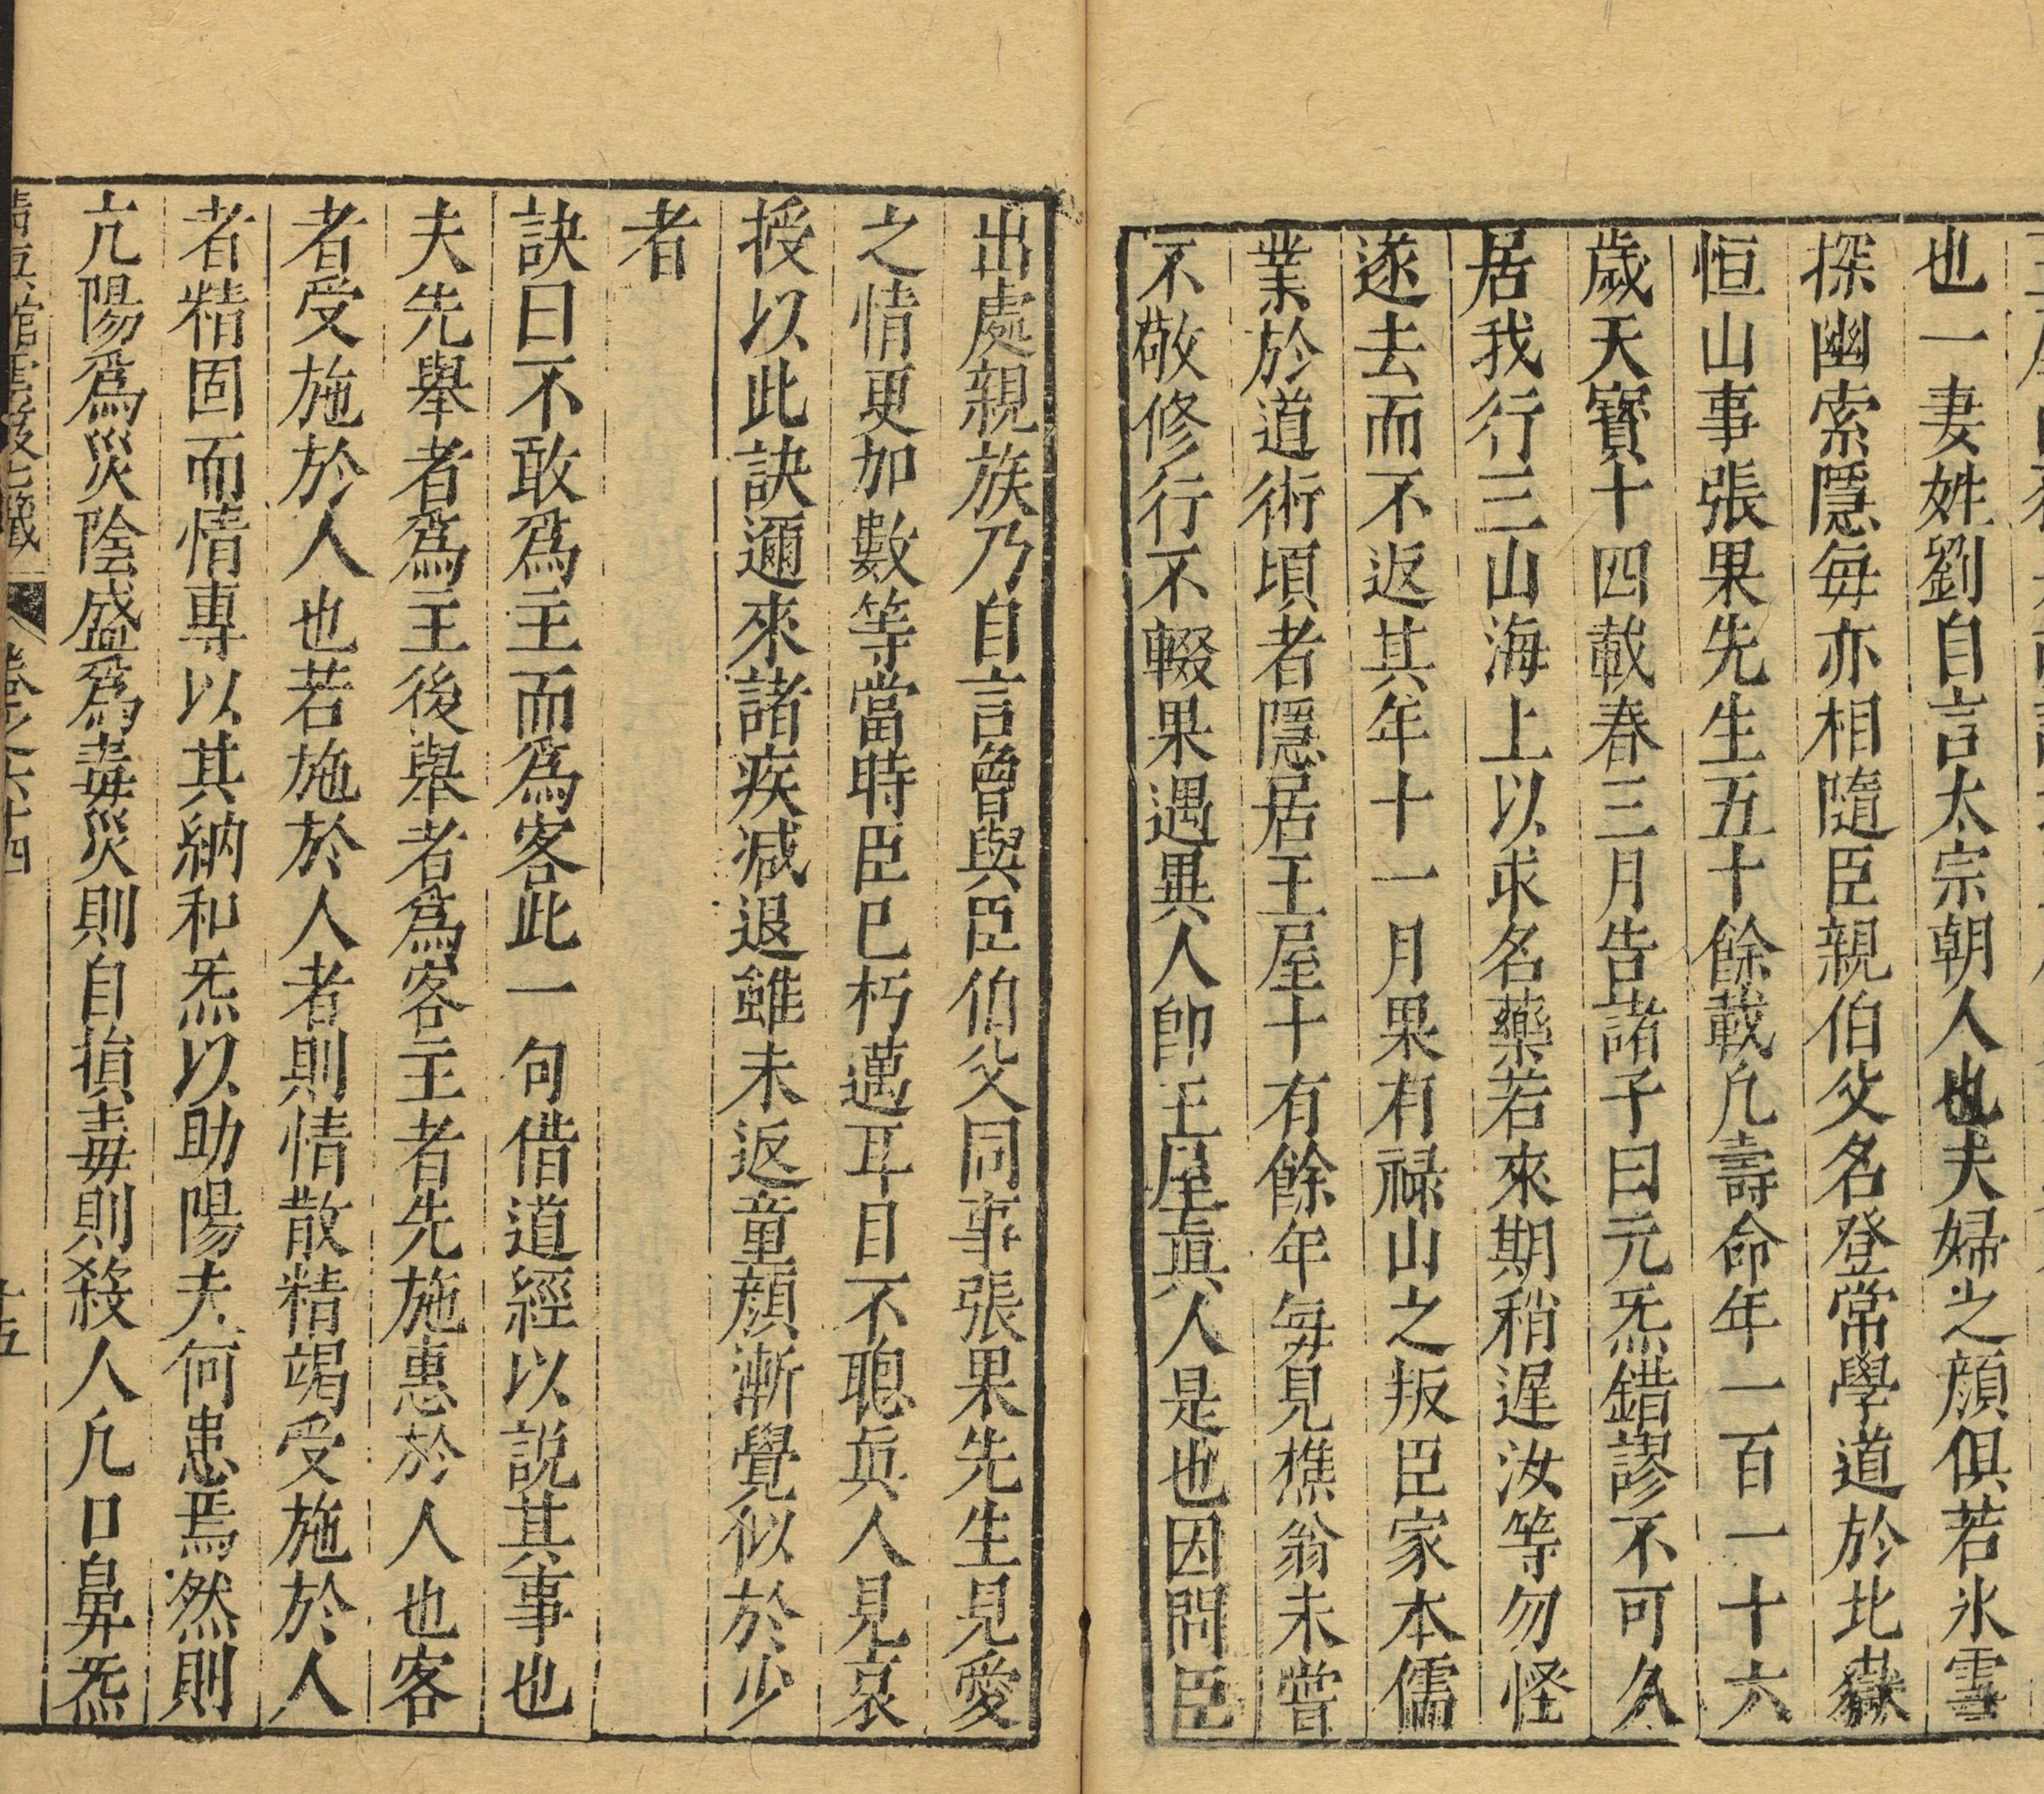 也一妻姓劉自言太宗朝人也夫婦之顔俱若氷雪
探幽索隱每亦相隨臣親伯父名登常學道於北嶽
恒山事張果先生五十餘載凢壽命年一百一十六
歲天寳十四載春三月告諸子曰元炁錯謬不可久
居我行三山海上以求名藥若來期稍遲汝等勿怪
遂去而不返其年十一月果有禄山之叛臣家本儒
業於道術頃者隱居王屋十有餘年每見樵翁未嘗
不敬修行不輟果遇異人卽王屋眞人是也因問臣
出處親族乃自言曾與臣伯父同事張果先生見愛
之情更加數等當時臣已朽邁耳目不聰眞人見哀
授以此訣邇來諸疾减退雖未返童顔漸覺似於少
者
訣曰不敢爲主而爲客此一句借道經以説其事也
夫先舉者爲主後舉者爲客主者先施惠於人也客
者受施於人也若施於人者則情散精竭受施於人
者精固而情專以其納和炁以助陽夫何患焉然則
亢陽爲災陰盛爲毒災則自損毒則殺人凢口鼻炁
卷之六十四
十五